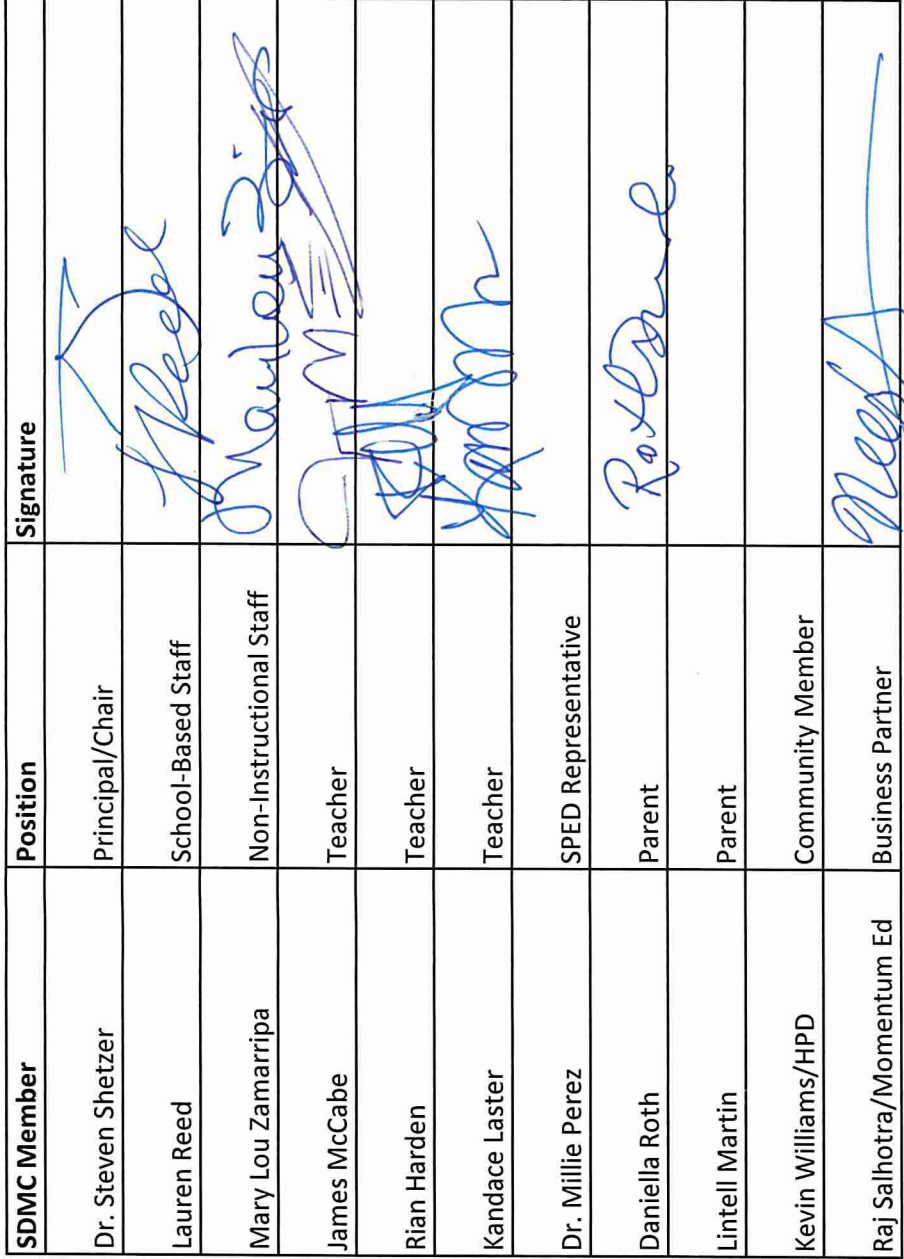 SDMC Member Position Signature
Dr. Steven Shetzer Principal/Chair
Lauren Reed School-Based Staff LReed
Mary Lou Zamarripa Non-Instructional Staff
James McCabe Teacher
Rian Harden Teacher
Kandace Laster Teacher
Dr. Millie Perez SPED Representative
Daniella Roth Parent
Lintell Martin Parent
Kevin Williams/HPD Community Member
Raj Salhotra/Momentum Ed Business Partner